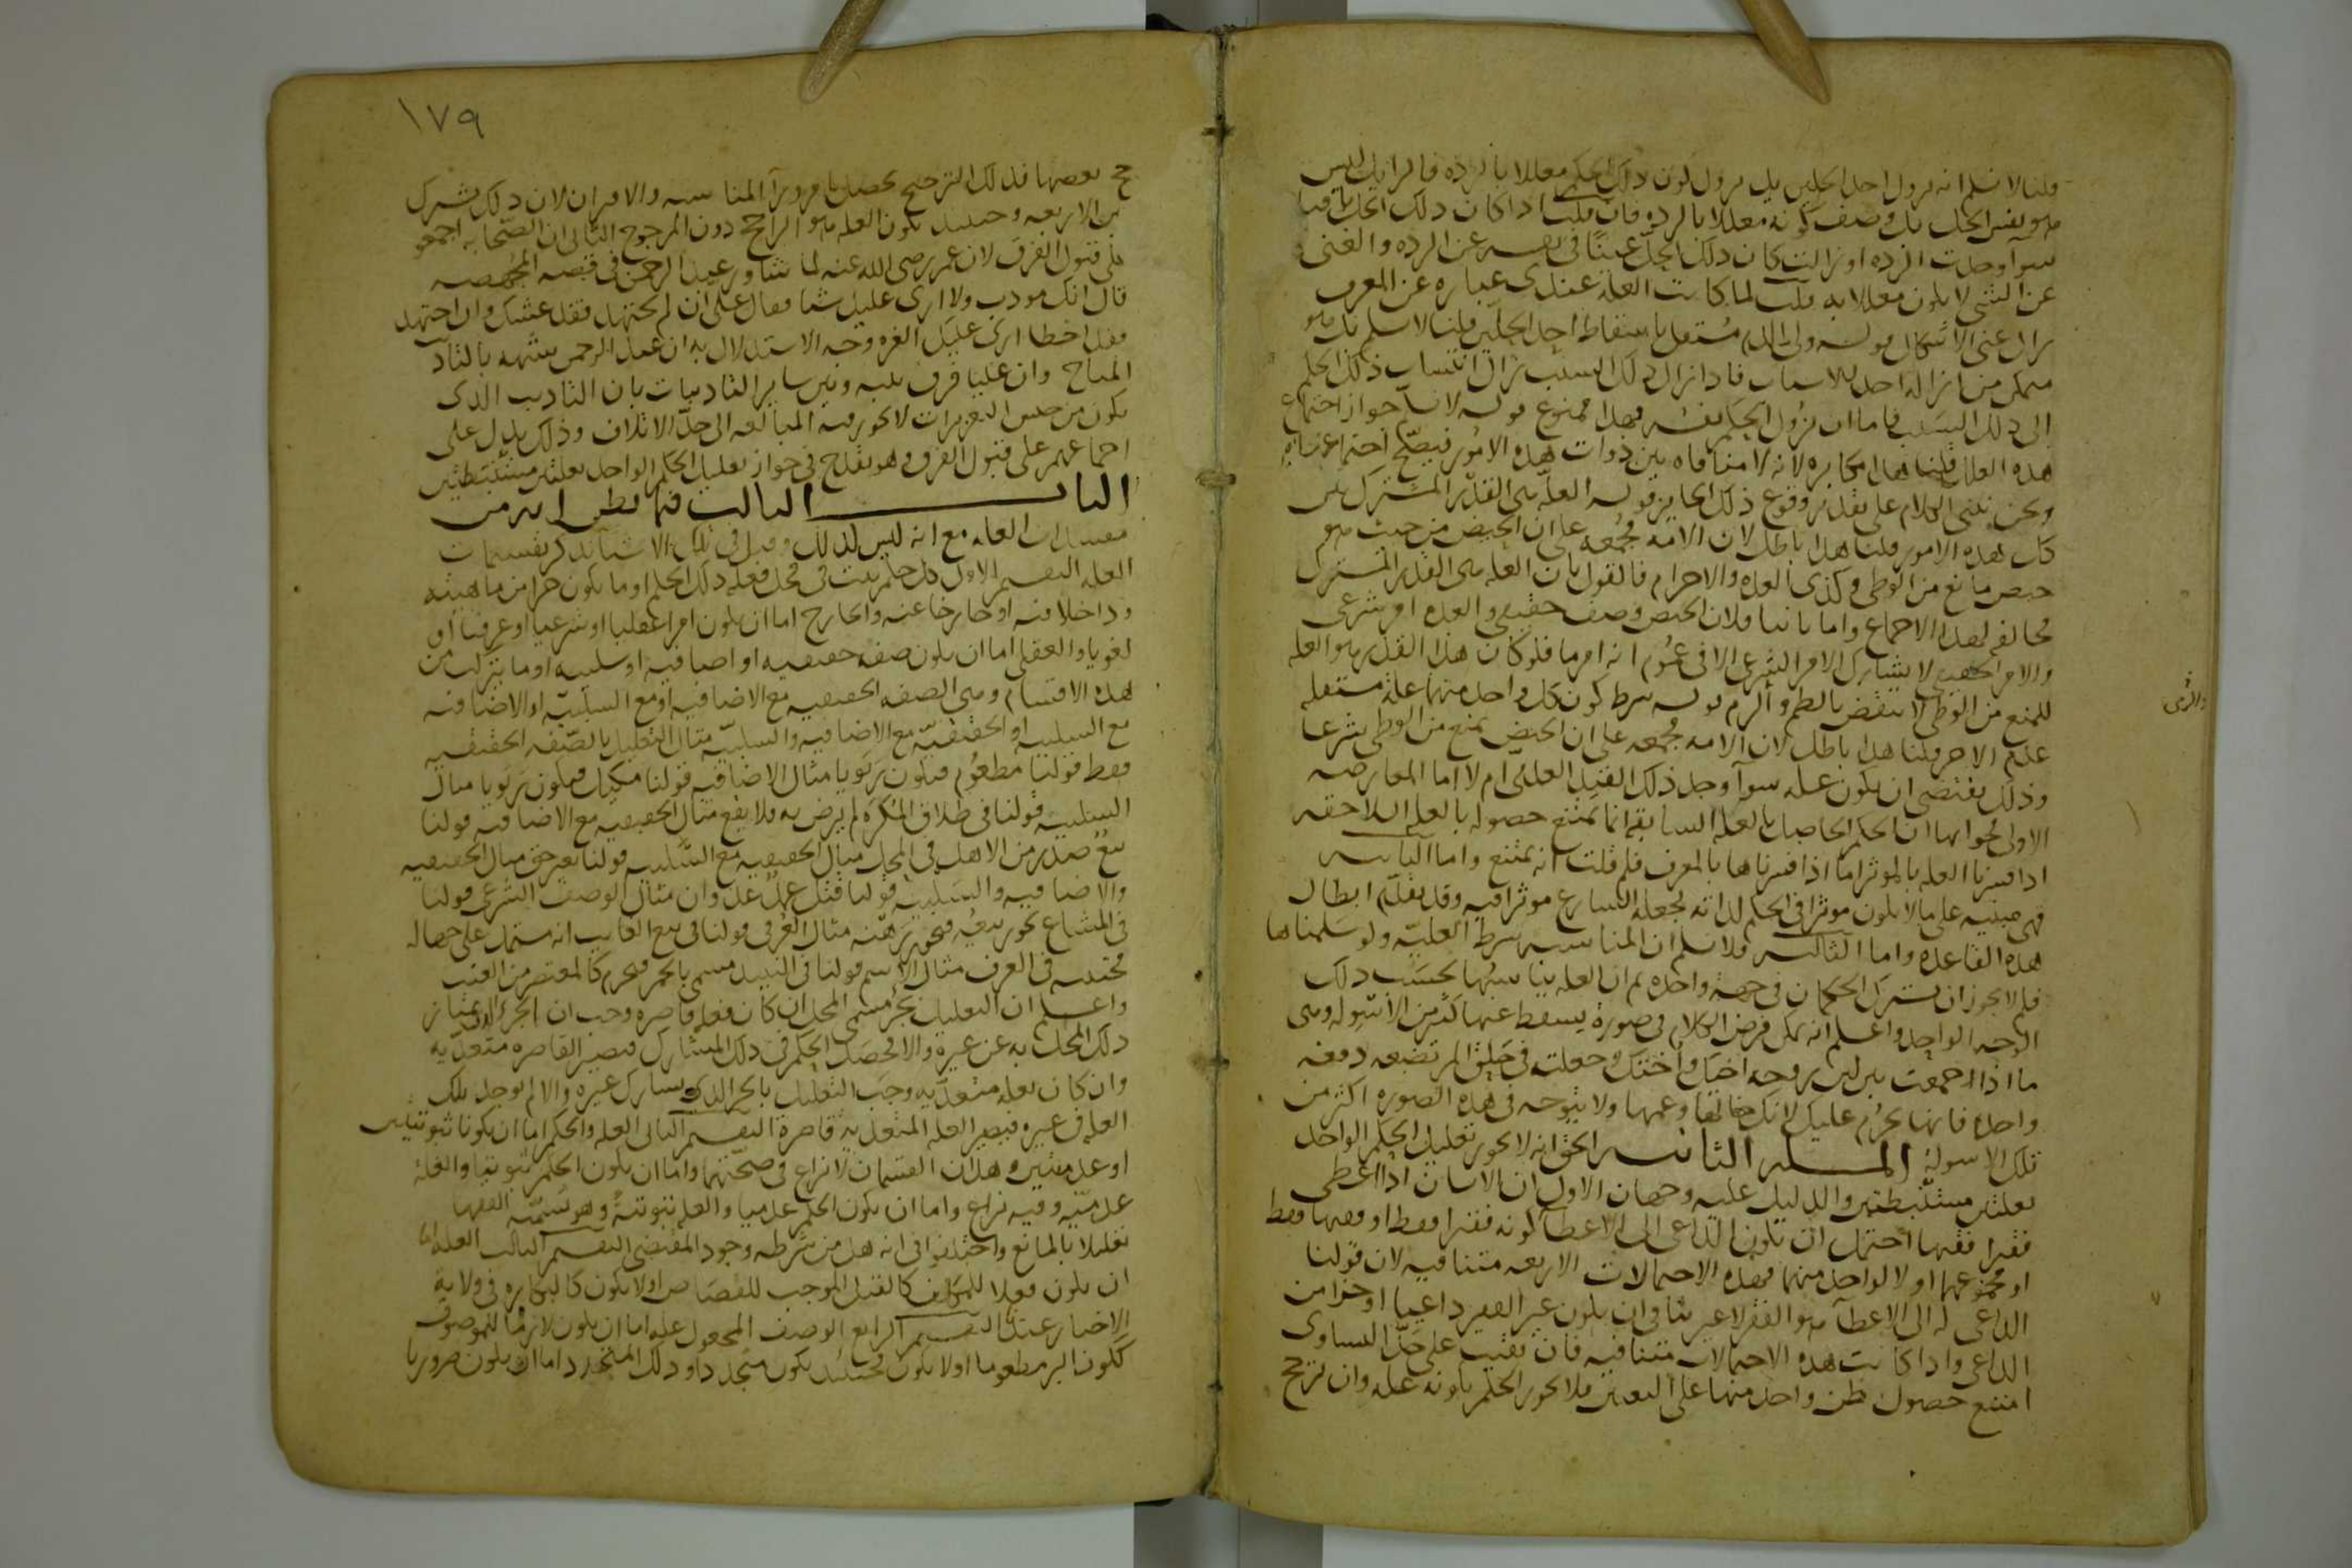 قلنا لا نسلم انه يزول احد الحلين بل يزول كون ذلك الحكم معللا بالردة فالزايل ليس
هو نفس الحل بل وصف كونه معللا بالردة فان قلت اذا كان ذلك الحل باقيا
سوآ وجدت الردة او زالت كان ذلك الحل غنيا في نفسه عن الردة والغنى
عن الشي لا يكون معللا به قلت لما كانت العلة عندى عبارة عن المعرف
زال عنى الاشكال قوله ولى الدم مستقل باسقاط احد الحلين قلنا لا نسلم بل هو
متمكن من ازالة احد الاسباب فاذا زال ذلك السبب زال انتساب ذلك الحكم
الى ذلك السبب فاما ان يزول الحكم نفسه فهذا ممنوع قوله لا نسلم جواز اجتماع
هذه العلل قلنا هذا مكابرة لانه لا منافاه بين ذوات هذه الامور فيصح اجتماعها
ونحن نبنى الكلام على تقدير وقوع ذلك الجايز قوله العلة هى القدر المشترك بين
كل هذه الامور قلنا هذا باطل لان الامة مجمعة على ان الحيض من حيث هو
حيض مانع من الوطى وكذى العدة والاحرام فالقول بان العلة هى القدر المشترك
مخالفه لهذا الاجماع واما ثانيا فلان الحيض وصف حقيقى والعدة امر شرعى
والامر الحقيقى لا يشارك الامر الشرعى الا فى عموم انه امر ما فلو كان هذا القدر هو العلة
للمنع من الوطى لا نتقض بالطم والرم قوله شرط كون كل واحد منها علة مستقلة
عدم الاخر قلنا هذا باطل لان الامة مجمعة على ان الحيض يمنع من الوطى شرعا
وذلك يقتضى ان يكون علة سوآ وجد ذلك القيد العدمى ام لا اما المعارضة
الاولى فجوابها ان الحكم الحاصل بالعلة السابقة انما يمتنع حصوله بالعلة اللاحقة
اذا فسرنا العلة بالموثر اما اذا فسرناها بالمعرف فلم قلت انه يمتنع واما الثانية
فهى مبنية على ما لا يكون موثرا فى الحكم لذاته لجعله الشارع موثرا فيه وقد تقدم ابطال
هذه القاعدة واما الثالثة فلا نسلم ان المناسبة شرط العلية ولو سلمناها
فلم لا يجوز ان يشترك الحكمان فى جهة واحدة ثم ان العلة يناسبها بحسب ذلك
الوجه الواحد واعلم انه يمكن فرض الكلام فى صورة يسقط عنها كثير من الاسولة وهى
ما اذا جمعت بين لبن زوجة اخيك واختك وجعلته فى حلق المرتضعة دفعة
واحدة فانها تحرم عليك لانك خالها وعمها ولا يتوجه فى هذه الصورة اكثر من
تلك الاسولة المسلة الثانية الحق انه لا يجوز تعليل الحكم الواحد
بعلتين مستنبطتين والدليل عليه وجهان الاول ان الانسان اذا اعطى
فقيرا فقيها احتمل ان يكون الداعى الى الاعطآ كونه فقيرا فقط او فقيها فقط
او مجموعهما او لا لواحد منهما فهذه الاحتمالات الاربعة متنافية لان قولنا
الداعى له الى الاعطآ هو الفقر لا غير ينافى ان يكون غير الفقر داعيا او جزا من
الداعى واذا كانت هذه الاحتمالات متنافية فان بقيت على حد التساوى
امتنع حصول ظن واحد منها على التعيين فلا يجوز الحكم بكونه علة وان ترجح
والرمى
١٧٩
جح بعضها فذلك الترجيح يحصل بامر ورآ المناسبة والاقتران لان ذلك مشترك
بين الاربعة وحينئذ تكون العلة هو الراجح دون المرجوح الثانى ان الصحابة اجمعو
على قبول الفرق لان عمر رضى الله عنه لما شاور عبد الرحمن فى قصة المجهضة
قال انك مودب ولا ارى عليك شيا فقال على ان لم يجتهد فقد غشك وان اجتهد
فقد اخطا ارى عليك الغرة وجه الاستدلال به ان عبد الرحمن شبهه بالتادب
المباح وان عليا فرق بينه وبين ساير التاديبات بان التاديب الذى
يكون من جنس التعزيرات لا يجوز فيه المبالغة الى حد الاتلاف وذلك يدل على
اجماعهم على قبول الفرق وهو يقدح فى جواز تعليل الحكم الواحد بعلتين مستنبطتين
الباب الثالث فيما يظن انه من
مفسدات العلة مع انه ليس كذلك وقبل فى تلك الاشيآ نذكر تقسيمات
العلة التقسيم الاول كل حكم يثبت فى محل فعلة ذلك الحكم اما يكون جزا من ماهيته
وداخلا فيه او خارجا عنه والخارج اما ان يكون امرا عقليا او شرعيا او عرفيا او
لغويا والعقلى اما ان يكون صفة حقيقية او اضافية او سلبية او ما يتركب من
هذه الاقسام وهى الصفة الحقيقية مع الاضافية او مع السلبية او الاضافية
مع السلبية او الحقيقية مع الاضافية والسلبية مثال التعليل بالصفة الحقيقية
فقط قولنا مطعوم فيكون ربويا مثال الاضافية قولنا مكيل فيكون ربويا مثال
السلبية قولنا فى طلاق المكره لم يرض به فلا يقع مثال الحقيقية مع الاضافية قولنا
بيع صدر من الاهل فى المحل مثال الحقيقية مع السلبية قولنا بغير حق مثال الحقيقية
والاضافية والسلبية قولنا قتل عمد عدوان مثال الوصف الشرعى قولنا
فى المشاع يجوز بيعه فيجوز رهنه مثال العرفى قولنا فى بيع الغايب انه مشتمل على جهالة
مجتنبة فى العرف مثال الاسم قولنا فى النبيذ مسمى بالخمر فيحرم كالمعتصر من العنب
واعلم ان التعليل بجزء مسمى المحل ان كان بعلة قاصرة وجب ان الجزء الذى يمتاز
ذلك المحل به عن غيره والا لحصل الحكم فى ذلك المشارك فتصير القاصرة متعدية
وان كان بعلة متعدية وجب التعليل بالجز الذى يشارك غيره والا لم توجد تلك
العلة فى غيره فتصير العلة المتعدية قاصرة التقسيم الثانى العلة والحكم اما ان يكونا ثبوتيين
او عدميين وهذان القسمان لا نزاع فى صحتهما واما ان يكون الحكم ثبوتيا والعلة
عدمية وفيه نزاع واما ان يكون الحكم عدميا والعلة ثبوتية وهو يسميه الفقها
تعليلا بالمانع واختلفوا فى انه هل من شرطه وجود المقتضى التقسيم الثالث العلة اما
ان يكون فعلا للمكلف كالقتل الموجب للقصاص او لا يكون كالبكارة فى ولاية
الاجبار عندنا التقسيم الرابع الوصف المجعول علة اما ان يكون لازما للموصوف
ككون البر مطعوما او لا يكون فحينئذ يكون متجددا وذلك المتجدد اما ان يكون ضروريا